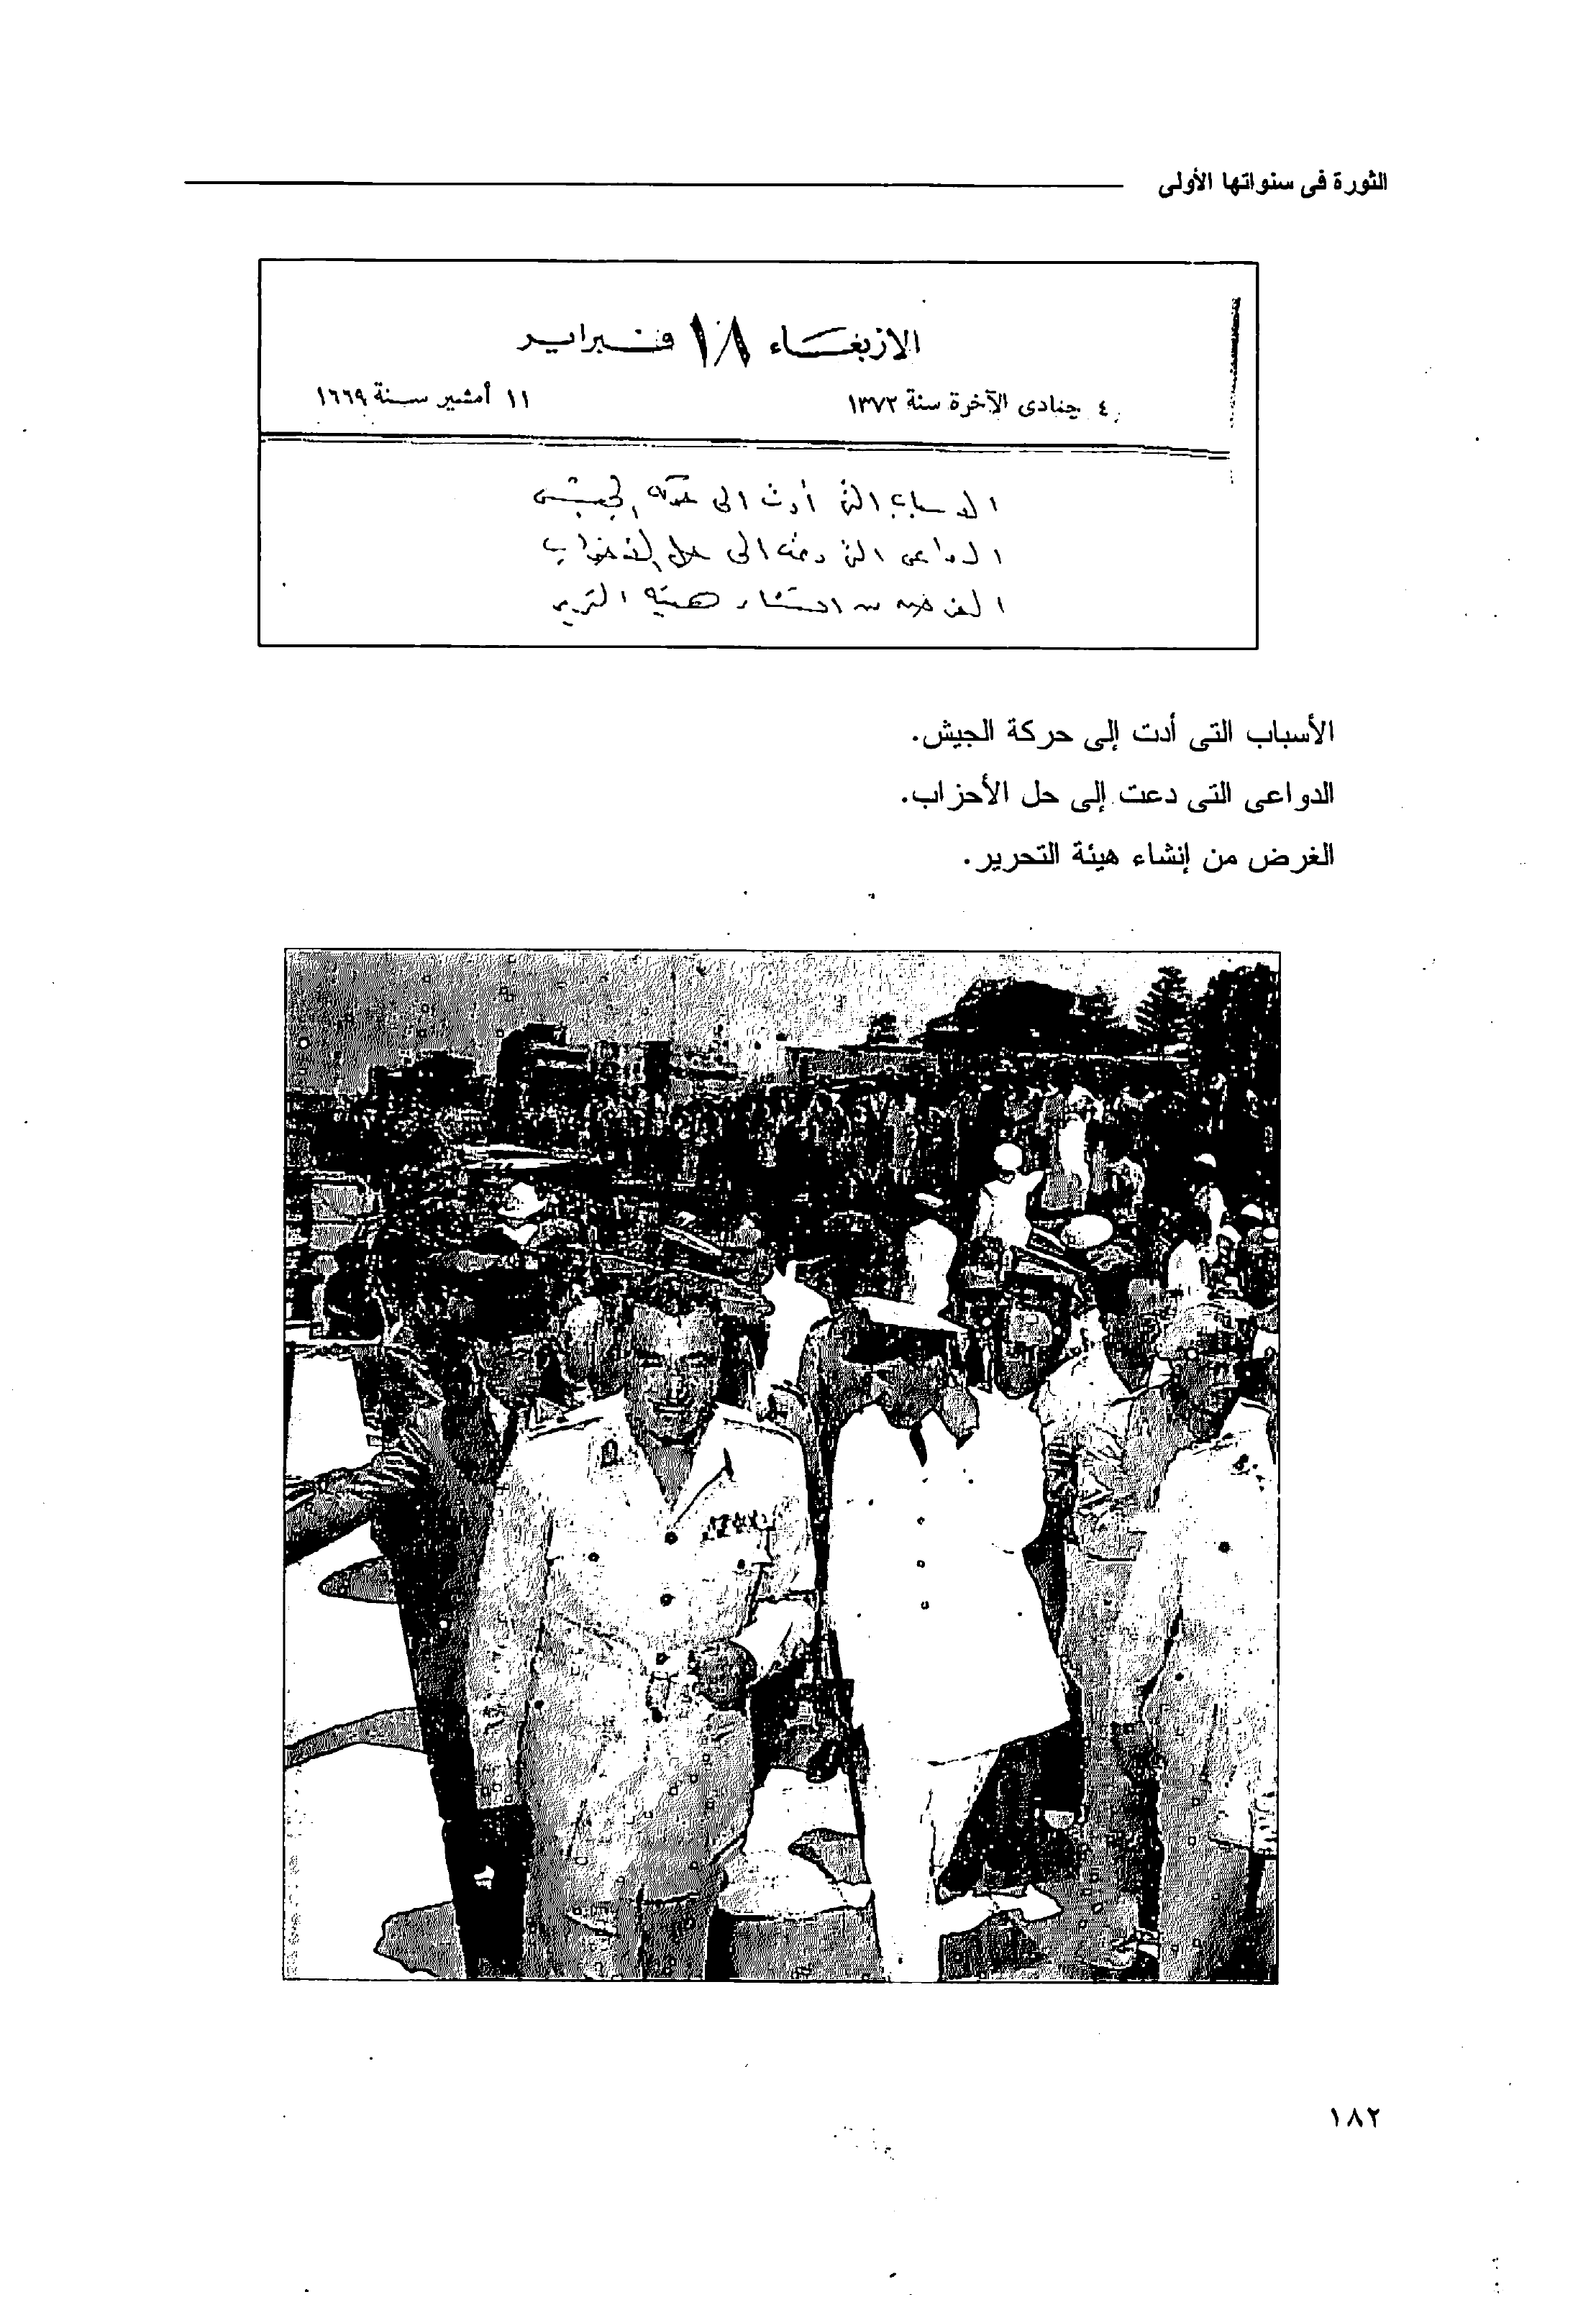 الثورة فى سنواتها الأولى
الأربعاء ١٨ فبراير
٤ جمادى الآخرة سنة ١٣٧٢
١١ أمشير سنة ١٦٦٩
الاسباب التى أدت الى حركة الجيش
الدواعى التى دعت الى حل الاحزاب
الغرض من انشاء هيئة التحرير
الأسباب التى أدت إلى حركة الجيش.
الدواعى التى دعت إلى حل الأحزاب.
الغرض من إنشاء هيئة التحرير.
١٨٢